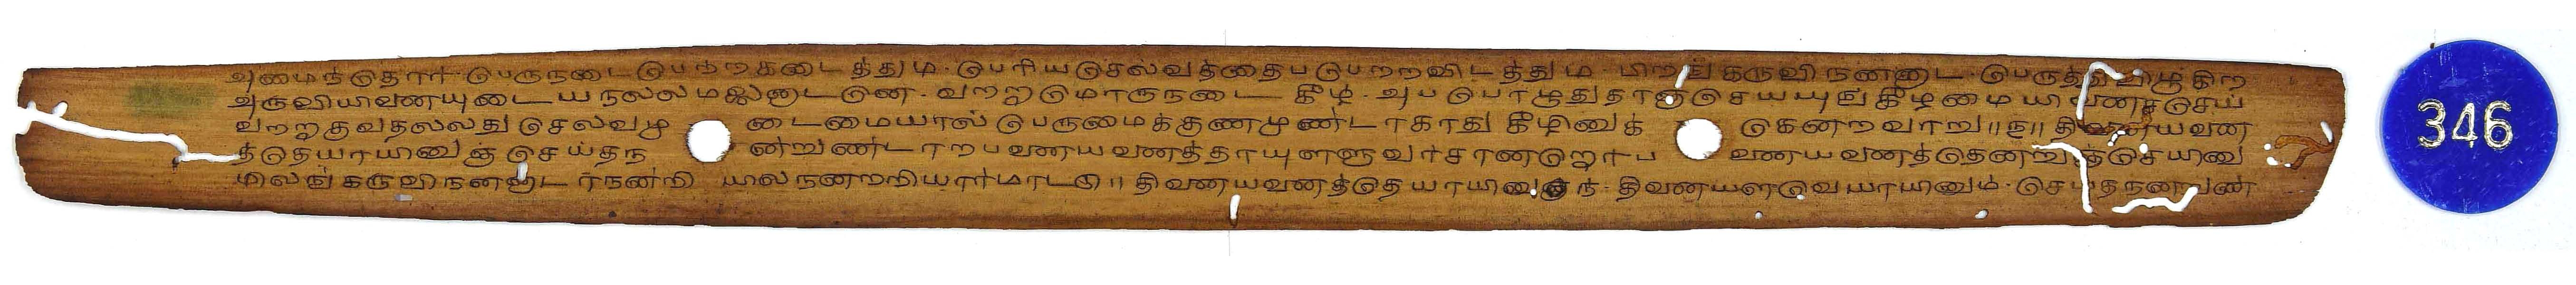 அமைந்தார். பெருநடைபெற்றகடைத்தும். பெரியசெல்வத்தைபபெறறவிடத்தும. பிறங்கருவி நனனுட. பெருத்திவிழுகிற
அருவியிவனயுடைய நலலமலைனுடனே. வறறுமொருநடை கீழ். அபபொழுதுதானுஞ்செயயுங்கீழமையவனசெய்
வறறுதவதலலது செல்வழ டைமையால் பெருமைக்குணமுண்டாகாது கீழினுக் கெனறவாறு॥உ॥ திவணயவண
த்தேயாயினுஞ் செய்தந ன்றுண்டாறபவணயவணத்தாயுளளுவர்சானறோர்ப வணயவணத்தேனறுஞ்செயினு
மிலங்கருவிநனனுடர்நன்றி யிலநனறறியார்மாடடு॥ திவணயவணத்தேயாயினுந். திவணயளவேயாயினும். செய்தநனறுண்
346